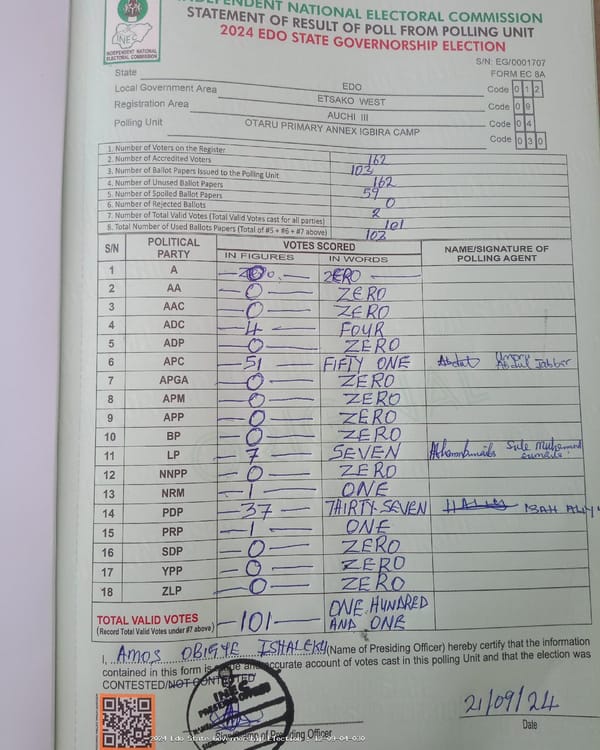 INDEPENDENT NATIONAL ELECTORAL COMMISSION
STATEMENT OF RESULT OF POLL FROM POLLING UNIT
2024 EDO STATE GOVERNORSHIP ELECTION
INEC
INDEPENDENT NATIONAL
ELECTORAL COMMISSION
S/N: EG/0001707
FORM EC 8A
State EDO Code 0 1 2
Local Government Area ETSAKO WEST Code 0 9
Registration Area AUCHI III Code 0 4
Polling Unit OTARU PRIMARY ANNEX IGBIRA CAMP Code 0 3 0
1. Number of Voters on the Register 162
2. Number of Accredited Voters 103
3. Number of Ballot Papers Issued to the Polling Unit 162
4. Number of Unused Ballot Papers 59
5. Number of Spoiled Ballot Papers 0
6. Number of Rejected Ballots 2
7. Number of Total Valid Votes (Total Valid Votes cast for all parties) 101
8. Total Number of Used Ballots Papers (Total of #5 + #6 + #7 above) 103
S/N POLITICAL PARTY VOTES SCORED NAME/SIGNATURE OF POLLING AGENT
IN FIGURES IN WORDS
1 A 0 ZERO
2 AA 0 ZERO
3 AAC 0 ZERO
4 ADC 4 FOUR
5 ADP 0 ZERO
6 APC 51 FIFTY ONE Abdul Jabbar
7 APGA 0 ZERO
8 APM 0 ZERO
9 APP 0 ZERO
10 BP 0 ZERO
11 LP 7 SEVEN
12 NNPP 0 ZERO
13 NRM 1 ONE
14 PDP 37 THIRTY-SEVEN
15 PRP 1 ONE
16 SDP 0 ZERO
17 YPP 0 ZERO
18 ZLP 0 ZERO
TOTAL VALID VOTES 101 ONE HUNDRED AND ONE
(Record Total Valid Votes under #7 above)
I, AMOS OBIGYE ISHALEKU (Name of Presiding Officer) hereby certify that the information
contained in this form is true and accurate account of votes cast in this polling Unit and that the election was
CONTESTED/NOT CONTESTED
INEC
PRESIDING OFFICER
Signature of Presiding Officer
21/09/24
Date